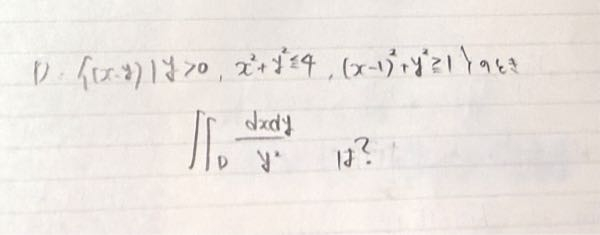 D: {(x,y) | y>0, x²+y²≦4, (x-1)²+y²≧1}のとき
∬_D dxdy/y² は?